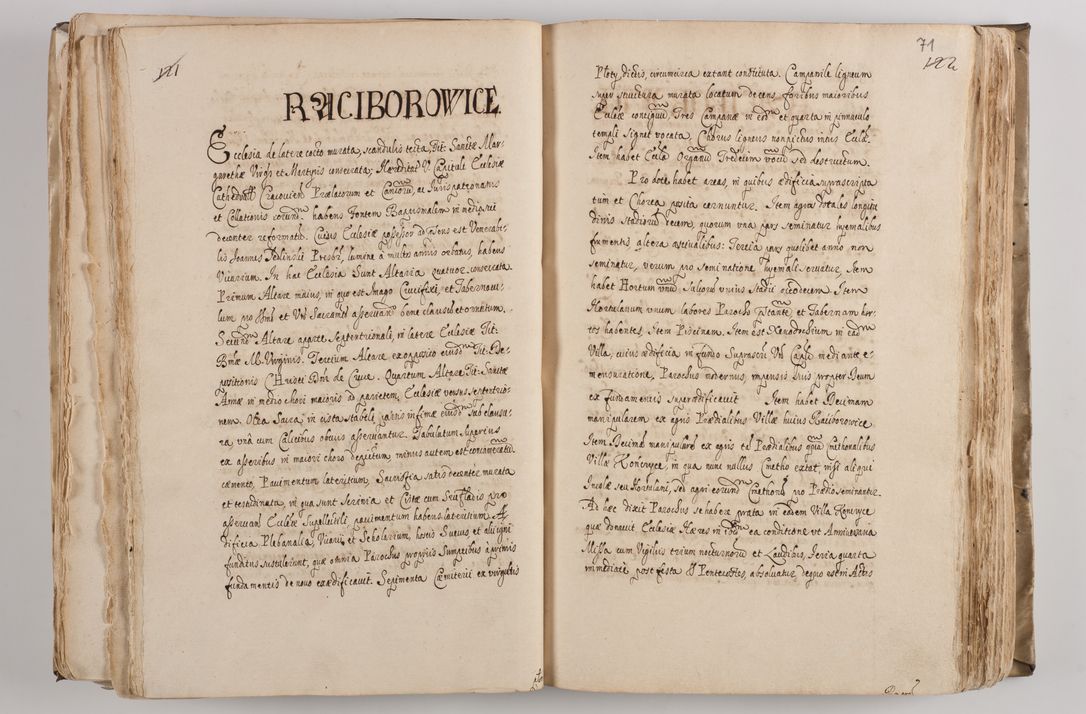 121
RACIBOROWICE.
Ecclesia de latere cocto murata, scandulis tecta, Tit: Sanctæ Mar-
garethæ Virgis et Martyris consecrata; Hæreditas V. Capituli Ecclesiæ
Cathedral: Cracovien̄ Prælatorum et Canicorū, ac Iuris patronatus
et Collationis eorund. habens Fontem Baptismalem in medio sui
decenter reformatū. Cuius Ecclesiæ possessor ad p̄sens est Venerabi-
lis Joannes Presbr, lumine à multis annis orbatus, habens
Vicarium. In hac Ecclesia Sunt Altaria quatuor consecrata.
Primum Altare maius, in quo est Imago Crucifixi, et Tabernacu-
lum pro et Vn̄ Sacramto asservanō bene clausū et ornatum.
Secund Altare a parte Septentrionali, in latere Ecclesiæ Tit:
Btmæ M. Virginis. Tertium Altare ex opposito eiusd Tit: De-
positionis Christi Dni de Cruce. Quartum Altare Tit: Sanctæ
Annæ in medio chori maioris ad parietem, Ecclesiæ versus septentrio-
nem. Olea Sacra, in cista stabili parvis infimæ eiusd sub clausu-
ra unà cum Calicibus obviis asservantur. Tabulatum Superius
ex asseribus in maiori choro depictum, minus autem est concameratū
cæmento, Pavimentum lateritium. Sacristia satis decenter murata
et testudinata, in qua sunt Scrinia et Cistæ cum Sruffladis pro
asservan Ecclæ Supellectili, pavimentum habens lateritium. Æ-
dificia Plebanalia, Vicarii et Scholarium, hostis Suecus et alii igni
funditus sustulerunt, quæ omnia Parochus propriis Sumptibus à primis
fundamentis de novo exædificavit. Sepimenta Cæmiterii ex virgultis
71
122
Ploty dictis, circumcirca extant constituta. Campanile ligneum
super structura murata locatum decens foribus maioribus
Ecclæ contiguū. Tres Campanæ in eod et quarta in pinnaculo
templi Signet vocata. Chorus ligneus non pictus intus Ecclā.
Item habet Ecclā Organū Tredecim vocū sed destructum.
Pro dote habet areas, in quibus ædificia suprascripta
tum et Chorea posita cernuntur. Item agros dotales longitu
dinis stadiorū decem, quorum una pars seminatur hyemalibus
frumentis altera æstivalibus: Tertia pars quolibet anno non
seminatur, verum pro seminatione hyemali servatur. Item
habet Hortum unū Saliorū unius Stadii eiusdecem. Item
Hortulanum unum labores Parocho p̄stantē et Tabernam hor-
tos habentes. Item Piscinam. Item est Xenodochium in ead
Villa, cuius ædificia in fundo Suprascri Vn̄ Capli mediante e-
mensuratione, Parochus modernus, impensis suis propter Deum
ex fundamentis superædificavit. Item habet Decimam
manipularem ex agris Prædialibus Villæ huius Raciborowice.
Item Decimā manipularē ex agris tā Prædialibus quā Cmethonalibus
Villæ Konczyce, in qua nunc nullus Cmetho extat, nisi aliqui
Incolæ seu Hortulani, sed agri eorund Cmethonū pro Prædio seminantur.
Ad hæc dixit Parochus se habere prata in eadem Villa Konczyce
quæ donavit Ecclesiæ Hæres in ibid ea conditione ut Anniversaria
Missa cum Vigiliis trium nocturnorū et Laudibus, Feria quarta
immediatè post festa S. Pentecostes, absolvatur de quo est in Actis